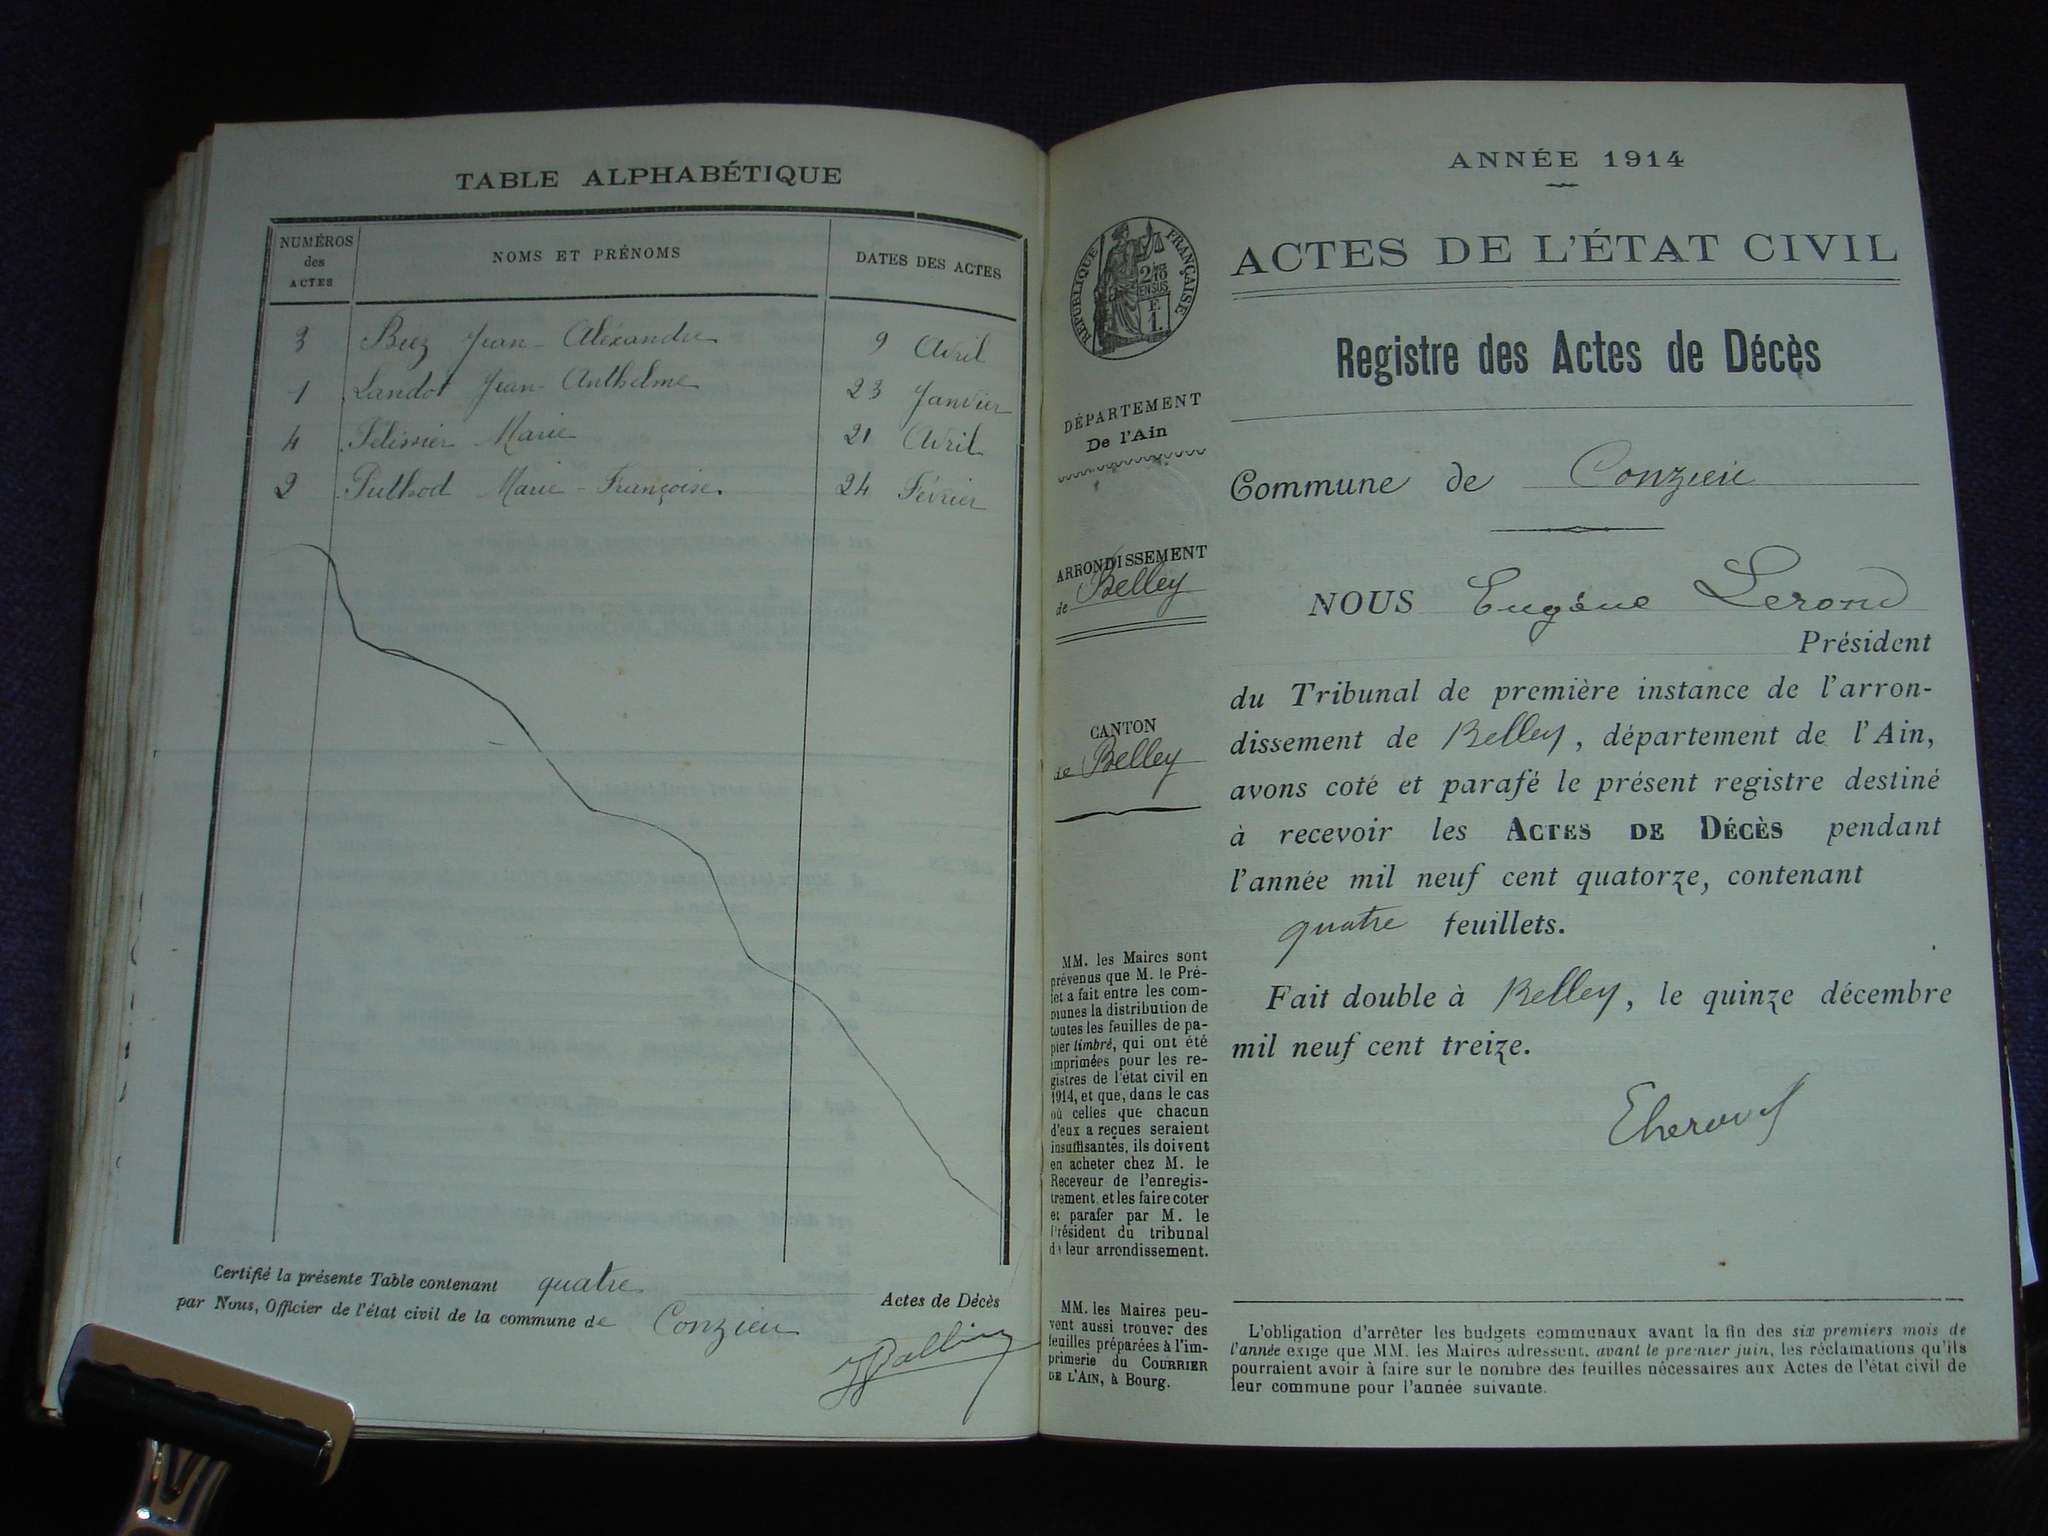 TABLE ALPHABÉTIQUE
NUMÉROS des ACTES
NOMS ET PRÉNOMS
DATES DES ACTES
3 Biez Jean-Aléxandre 9 Avril
1 Landot Jean-Anthelme 23 Janvier
4 Pelissier Marie 21 Avril
2 Puthod Marie-Françoise. 24 Février
Certifié la présente Table contenant quatre Actes de Décès
par Nous, Officier de l'état civil de la commune de Conzieu
ANNÉE 1914
RÉPUBLIQUE FRANÇAISE
ACTES DE L'ÉTAT CIVIL
Registre des Actes de Décès
DÉPARTEMENT
De l'Ain
Commune de Conzieu
ARRONDISSEMENT
de Belley
CANTON
de Belley
NOUS Eugène Lerond
Président
du Tribunal de première instance de l'arron-
dissement de Belley, département de l'Ain,
avons coté et parafé le présent registre destiné
à recevoir les ACTES DE DÉCÈS pendant
l'année mil neuf cent quatorze, contenant
quatre feuillets.
Fait double à Belley, le quinze décembre
mil neuf cent treize.
MM. les Maires sont
prévenus que M. le Pré-
fet a fait entre les com-
munes la distribution de
toutes les feuilles de pa-
pier timbré, qui ont été
imprimées pour les re-
gistres de l'état civil en
1914, et que, dans le cas
où celles que chacun
d'eux a reçues seraient
insuffisantes, ils doivent
en acheter chez M. le
Receveur de l'enregis-
trement. et les faire coter
et parafer par M. le
Président du tribunal
de leur arrondissement.
MM. les Maires peu-
vent aussi trouver des
feuilles préparées à l'im-
primerie du COURRIER
DE L'AIN, à Bourg.
L'obligation d'arrêter les budgets communaux avant la fin des six premiers mois de
l'année exige que MM. les Maires adressent, avant le premier juin, les réclamations qu'ils
pourraient avoir à faire sur le nombre des feuilles nécessaires aux Actes de l'état civil de
leur commune pour l'année suivante.